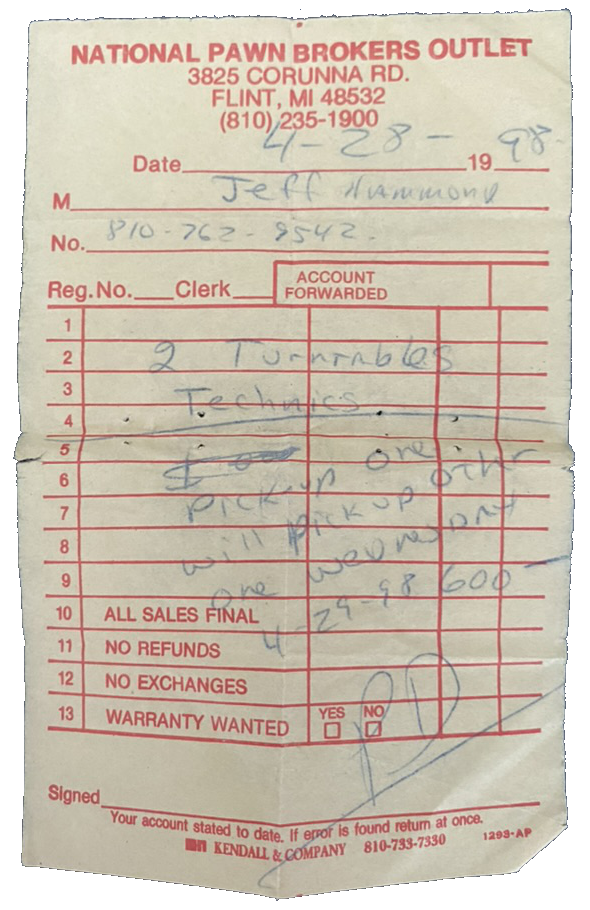 NATIONAL PAWN BROKERS OUTLET
3825 CORUNNA RD.
FLINT, MI 48532
(810) 235-1900
Date 4-28- 19 98
M Jeff Hammond
No. 810-762-9542.
Reg. No. Clerk ACCOUNT FORWARDED
1
2 2 Turntables
3 Technics
4
5
6 Pick-up one
7 will pick up other
8 one wednesday
9 4-29-98 600-
10 ALL SALES FINAL
11 NO REFUNDS
12 NO EXCHANGES
13 WARRANTY WANTED YES NO
PD
Signed
Your account stated to date. If error is found return at once.
KENDALL & COMPANY 810-733-7330 1293-AP